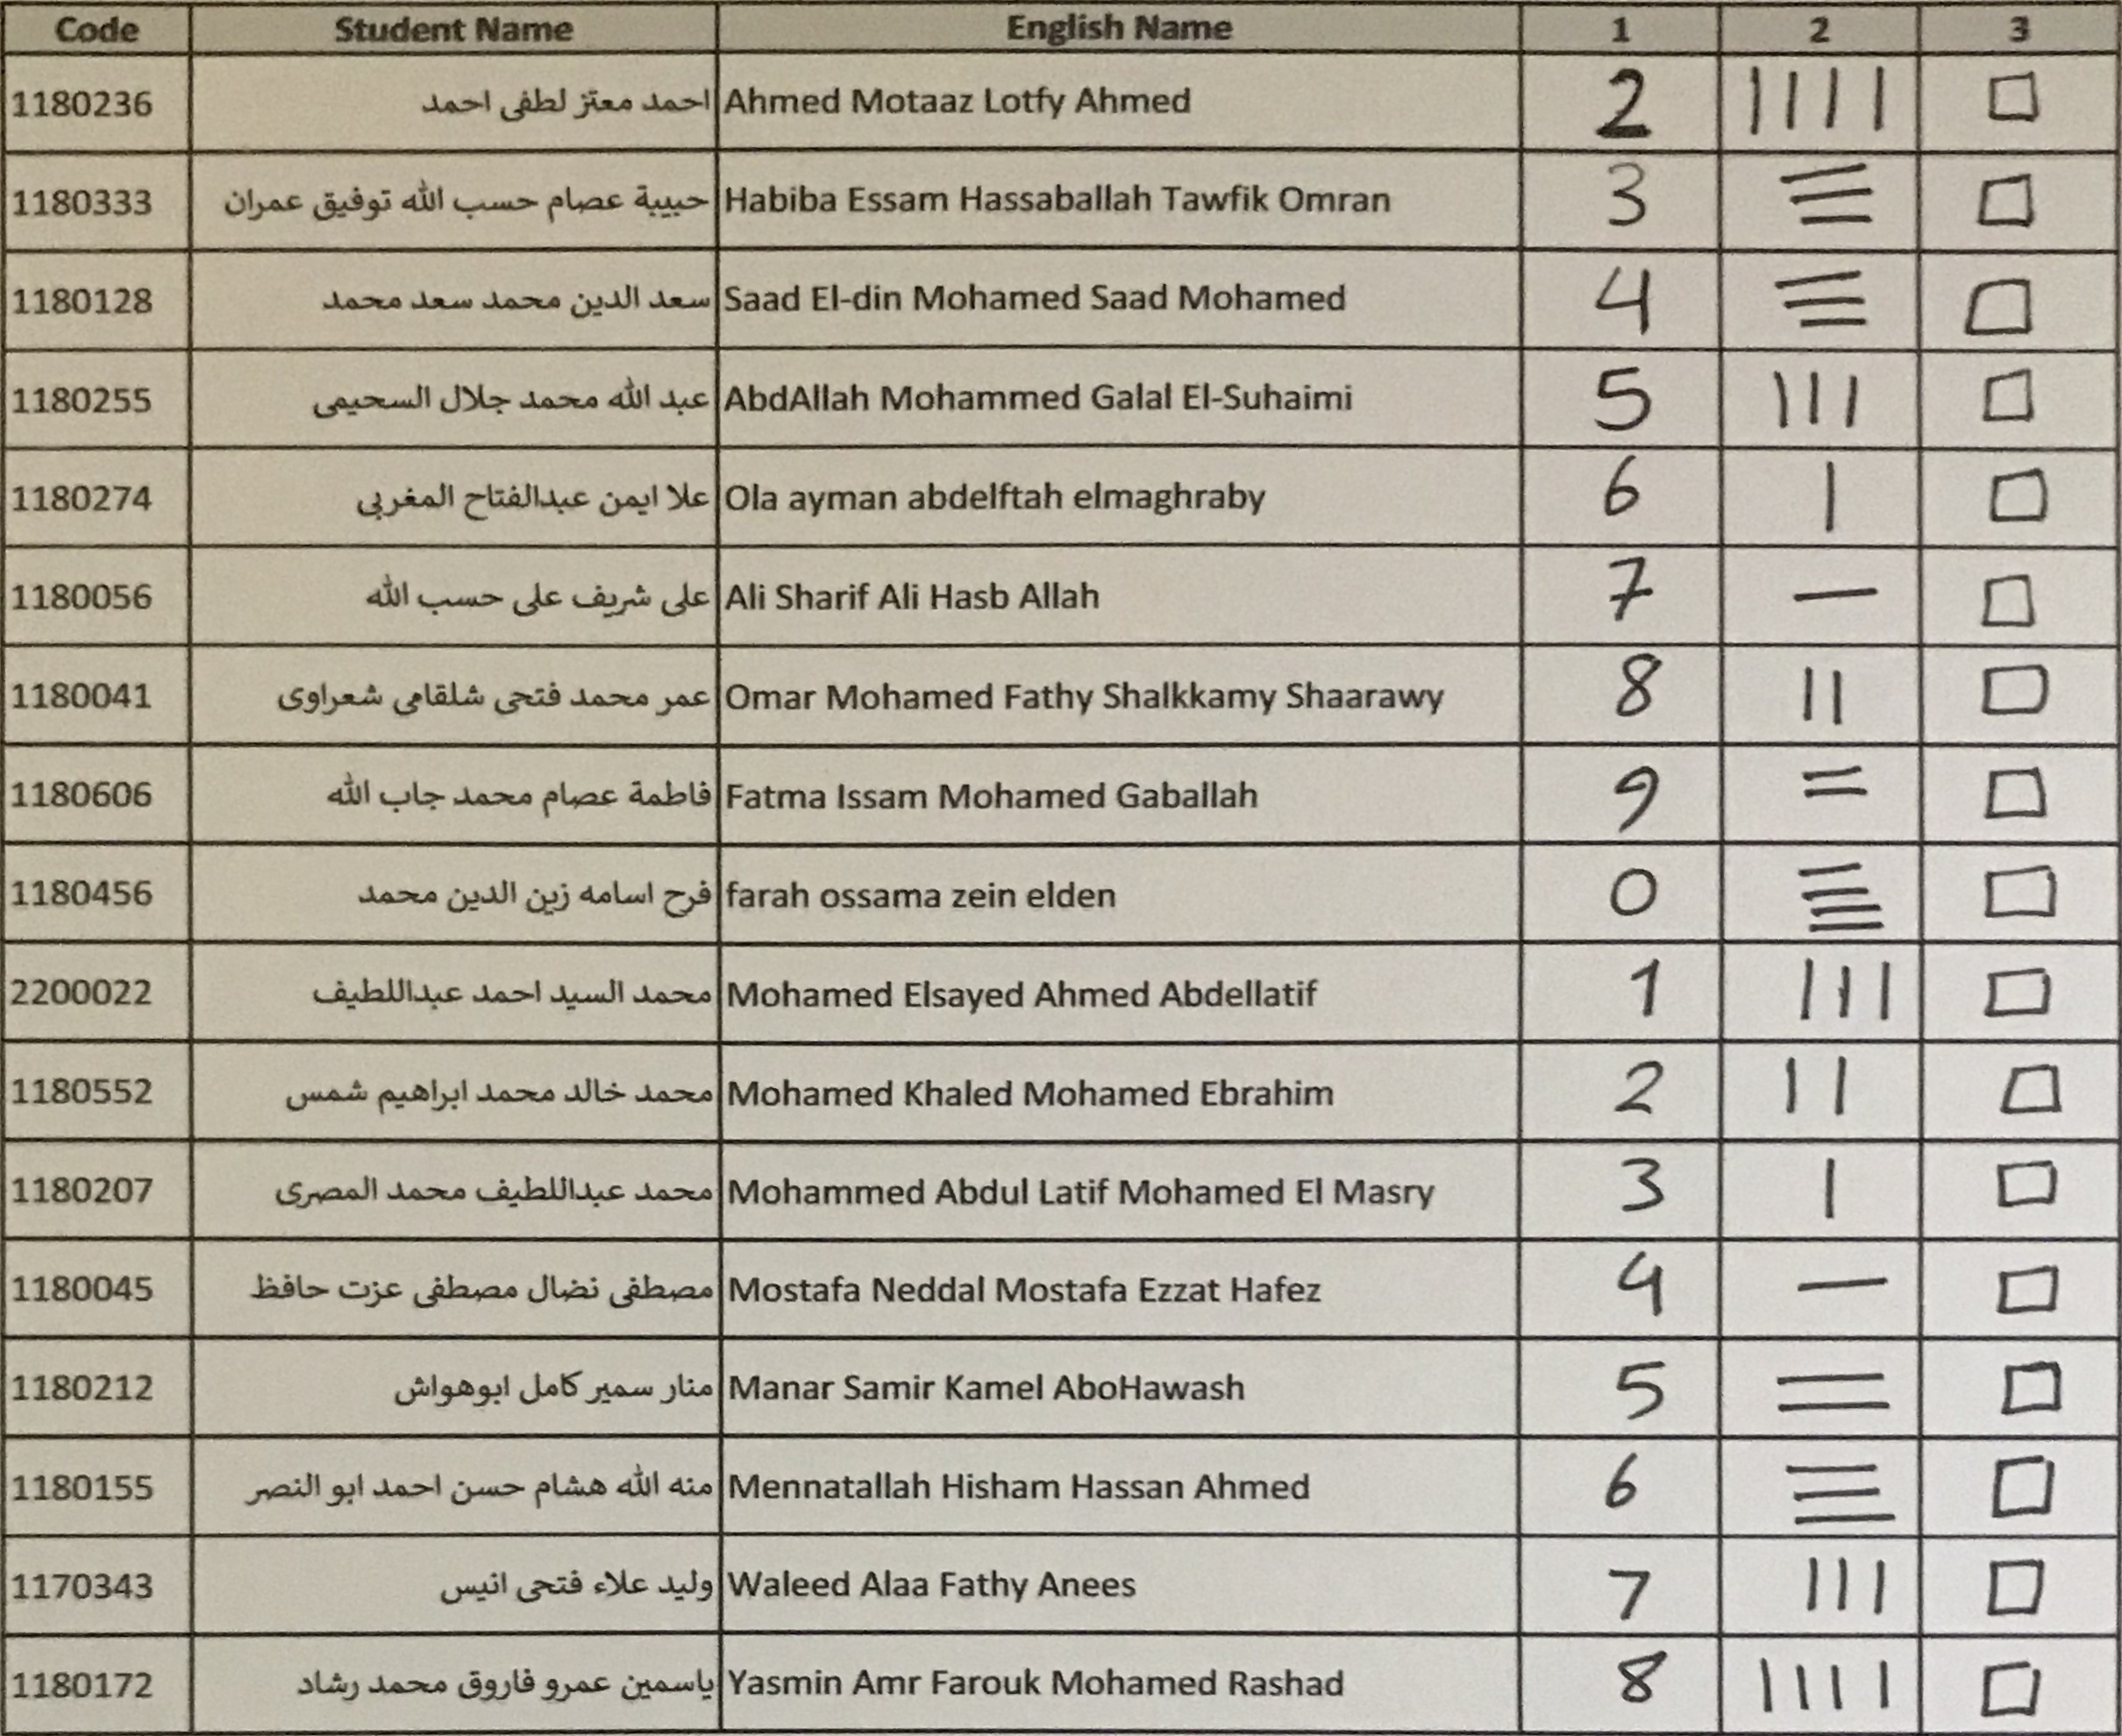 Code Student Name English Name 1 2 3
1180236 احمد معتز لطفى احمد Ahmed Motaaz Lotfy Ahmed 2 |||| □
1180333 حبيبة عصام حسب الله توفيق عمران Habiba Essam Hassaballah Tawfik Omran 3 ☰ □
1180128 سعد الدين محمد سعد محمد Saad El-din Mohamed Saad Mohamed 4 ☰ □
1180255 عبد الله محمد جلال السحيمى AbdAllah Mohammed Galal El-Suhaimi 5 ||| □
1180274 علا ايمن عبدالفتاح المغربى Ola ayman abdelftah elmaghraby 6 | □
1180056 على شريف على حسب الله Ali Sharif Ali Hasb Allah 7 — □
1180041 عمر محمد فتحى شلقامى شعراوى Omar Mohamed Fathy Shalkkamy Shaarawy 8 || □
1180606 فاطمة عصام محمد جاب الله Fatma Issam Mohamed Gaballah 9 = □
1180456 فرح اسامه زين الدين محمد farah ossama zein elden 0 𝄘 □
2200022 محمد السيد احمد عبداللطيف Mohamed Elsayed Ahmed Abdellatif 1 ||| □
1180552 محمد خالد محمد ابراهيم شمس Mohamed Khaled Mohamed Ebrahim 2 || □
1180207 محمد عبداللطيف محمد المصرى Mohammed Abdul Latif Mohamed El Masry 3 | □
1180045 مصطفى نضال مصطفى عزت حافظ Mostafa Neddal Mostafa Ezzat Hafez 4 — □
1180212 منار سمير كامل ابوهواش Manar Samir Kamel AboHawash 5 = □
1180155 منه الله هشام حسن احمد ابو النصر Mennatallah Hisham Hassan Ahmed 6 ☰ □
1170343 وليد علاء فتحى انيس Waleed Alaa Fathy Anees 7 ||| □
1180172 ياسمين عمرو فاروق محمد رشاد Yasmin Amr Farouk Mohamed Rashad 8 |||| □